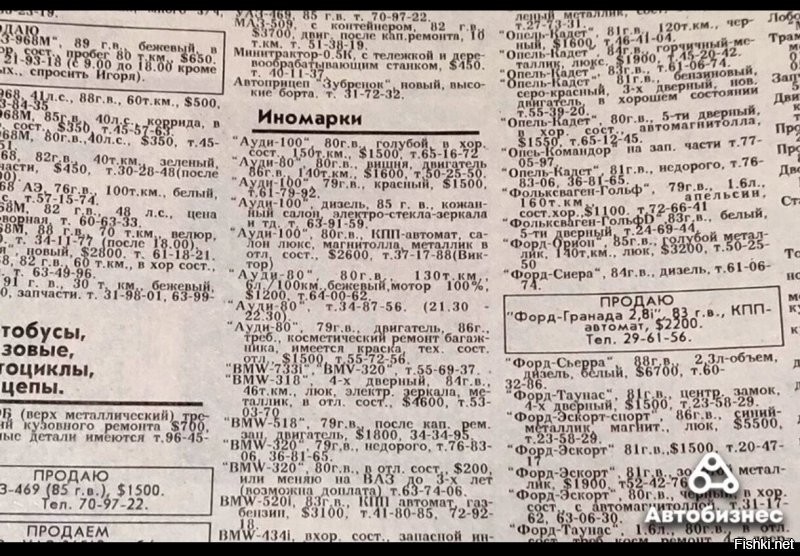 ДАЮ
-968М", 89 г.в., бежевый, в
хор. сост. пробег 80 т.км., $650.
21-93-18 (с 9.00 до 18.00 кроме
спросить Игоря).
968, 41л.с., 88г.в., 60т.км., $500,
-84-35
968М, 85г.в., 40л.с., коррида, в
сост., $350 т.45-57-63.
968М, 80г.в.,40л.с., $350, т.45-
968, 82г.в., 40т.км, зеленый,
части, $450, т.30-28-48(после
.00)
968 АЭ, 76г.в., 100т.км, белый,
т.57-15-74.
968М, 82 г.в., 48 л.с., цена
договорная, т. 60-63-33.
968М, 88 г.в., 70 т.км, велюр,
т. 34-11-77 (после 18.00).
новый, $2800. т. 61-18-21.
68, 82 г.в., 60 т.км., в хор сост.,
т. 63-49-96.
91 г. в., 30 т. км, бежевый,
00, запчасти. т. 31-98-01, 63-99-
тобусы,
зовые,
тоциклы,
цепы.
(верх металлический) тре-
ий кузовного ремонта $700,
ные детали имеются т.96-45-
ПРОДАЮ
З-469 (85 г.в.), $1500.
Тел. 70-97-22.
ПРОДАЕМ
УАЗ-469, 85 г.в. т. 70-97-22.
МАЗ-509, с контейнером, 82 г.в.,
$3700, двиг. после кап.ремонта, 10
т.км, т. 51-38-19.
Минитрактор-0.5К, с тележкой и дере-
вообрабатывающим станком, $450.
т. 40-11-37
Автоприцеп "Зубренок", новый, высо-
кие борта. т. 31-72-32.
Иномарки
"Ауди-100" 80г.в., голубой, в хор.
сост., 150т.км., $1500, т.65-16-72
"Ауди-80" 80г.в., вишня, двигатель
86г.в., 140т.км., $1600, т.50-25-50.
"Ауди-100" 79г.в., красный, $1500,
т.61-79-92.
"Ауди-100", дизель, 85 г. в., кожан-
ный салон, электро-стекла-зеркала
и тд, т. 63-91-59.
"Ауди-100", 80г.в., КПП-автомат, са-
лон люкс, магнитолла, металлик в
отл. сост., $2600, т.37-17-88(Вик-
тор)
"Ауди-80", 80г.в., 130т.км.,
6л./100км,бежевый,мотор 100%,
$1200, т.64-00-62.
"Ауди-80", т.34-87-56. (21.30 -
22.30).
"Ауди-80", 79г.в., двигатель, 86г.,
треб., косметический ремонт багаж-
ника, имеется краска, тех. сост.
отл., $1500, т.55-72-56.
"BMW-733i", "BMW-320", т.55-69-37.
"BMW-318", 4-х дверный, 84г.в.,
46т.км, люк, электр. зеркала, ме-
таллик, в отл. сост., $4600, т.53-
03-70
"BMW-518", 79г.в., после кап. рем.
зап. двигатель, $1800, 34-34-95.
"BMW-320" 79г.в., недорого, т.76-83-
06, 36-81-65.
"BMW-320", 80г.в., в отл. сост., $200,
или меняю на ВАЗ до 3-х лет
(возможна доплата) т.63-74-06.
BMW-520i, 83г.в., КПП автомат, газ-
бензин, $3100, т.41-80-85, 72-92-
18.
BMW-434i, вхор. сост., запасной ин-
леный металлик, сост.
т.27-73-31.
"Опель-Кадет", 81г.в., 120т.км., чер-
ный, $1600, т.46-41-04.
"Опель-Кадет", 84г.в., горчичный-ме-
таллик, люкс, $1900, т.45-20-42.
"Опель-Кадет", 83г.в., т.61-06-74.
"Опель-Кадет", 81г.в., бензиновый,
серо-красный, 3-х дверный, нов.
двигатель, в хорошем состоянии
т.55-39-20.
"Опель-Кадет", 80г.в., 5-ти дверный,
в хор. сост., автомагнитолла,
$1550, т.65-12-45.
"Опель-Командор" на зап. части т.77-
05-97.
"Опель-Кадет", 81г.в., недорого, т.76-
83-06, 36-81-65.
"Фольксваген-Гольф", 79г.в., 1.6л.,
160т.км., апельсин,
сост.хор.,$1100, т.72-66-41
"Фольксваген-ГольфD" 83г.в., белый,
5-ти дверный, т.24-69-44.
"Форд-Орион", 85г.в., голубой метал-
лик, 140т.км., люк, $3200, т.50-25-
50
"Форд-Сиера", 84г.в., дизель, т.61-06-
74.
ПРОДАЮ
"Форд-Гранада 2,8i", 83 г.в., КПП-
автомат, $2200.
Тел. 29-61-56.
"Форд-Сьерра", 88г.в., 2,3л-объем,
дизель, белый, $6700, т.60-
32-86.
"Форд-Таунас", 81г.в., центр. замок,
4-х дверный, $1500, т.23-58-29.
"Форд-Эскорт-спорт", 86г.в., синий-
металлик, магнит., люк, $5500,
т.23-58-29.
"Форд-Эскорт" 81г.в.,$1500, т.20-47-
17
"Форд-Эскорт", 81г.в., метал-
лик, $1900, т52-42-76
"Форд-Эскорт" 80г.в., черный, в хор.
сост., с автомагнитоллой, т.31-17-
62, 63-06-30.
"Форд-Таунас" 1.6л., 80г.в., в отл.
Автобизнес
Fishki.net